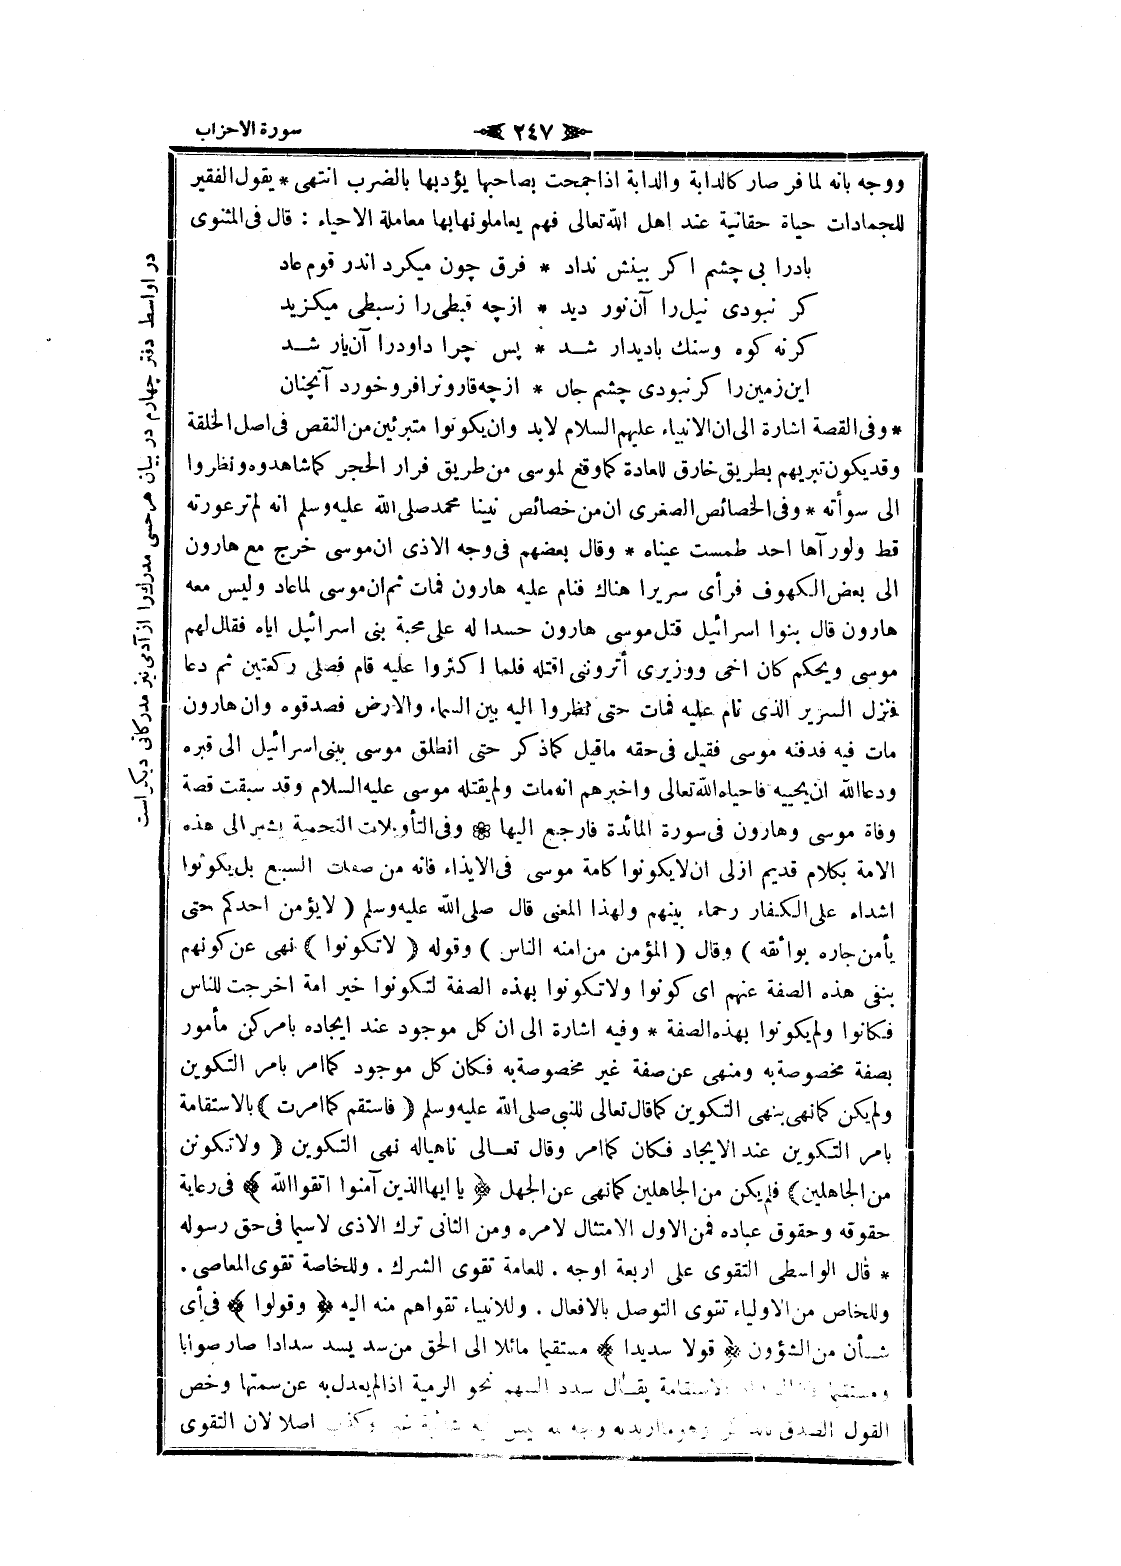 سورة الاحزاب
٢٤٧
ووجه بانه لما فر صار كالدابة والدابة اذا جمحت بصاحبها يؤدبها بالضرب انتهى * يقول الفقير
للجمادات حياة حقانية عند اهل الله تعالى فهم يعاملونها بها معاملة الاحياء : قال فى المثنوى
بادرا بى چشم اكر بينش نداد * فرق چون ميكرد اندر قوم عاد
كر نبودى نيل را آن نور ديد * ازچه قبطى را زسبطى ميكزيد
كرنه كوه وسنك باديدار شد * پس چرا داودرا آن يار شد
اين زمين را كر نبودى چشم جان * ازچه قارونرا فرو خورد آنچنان
* وفى القصة اشارة الى ان الانبياء عليهم السلام لابد وان يكونوا متبرئين من النقص فى اصل الخلقة
وقد يكون تبريهم بطريق خارق للعادة كما وقع لموسى من طريق فرار الحجر كما شاهدوه ونظروا
الى سوأته * وفى الخصائص الصغرى ان من خصائص نبينا محمد صلى الله عليه وسلم انه لم تر عورته
قط ولو رآها احد طمست عيناه * وقال بعضهم فى وجه الاذى ان موسى خرج مع هارون
الى بعض الكهوف فرأى سريرا هناك فنام عليه هارون فمات ثم ان موسى لما عاد وليس معه
هارون قال بنوا اسرائيل قتل موسى هارون حسدا له على محبة بنى اسرائيل اياه فقال لهم
موسى ويحكم كان اخى ووزيرى أترونى اقتله فلما اكثروا عليه قام فصلى ركعتين ثم دعا
فنزل السرير الذى نام عليه فمات حتى نظروا اليه بين السماء والارض فصدقوه وان هارون
مات فيه فدفنه موسى فقيل فى حقه ماقيل كما ذكر حتى انطلق موسى ببنى اسرائيل الى قبره
ودعا الله ان يحييه فاحياه الله تعالى واخبرهم انه مات ولم يقتله موسى عليه السلام وقد سبقت قصة
وفاة موسى وهارون فى سورة المائدة فارجع اليها * وفى التأويلات النجمية يشير الى هذه
الامة بكلام قديم ازلى ان لايكونوا كامة موسى فى الايذاء فانه من صفات السبع بل يكونوا
اشداء على الكفار رحماء بينهم ولهذا المعنى قال صلى الله عليه وسلم ( لايؤمن احدكم حتى
يأمن جاره بوائقه ) وقال ( المؤمن من امنه الناس ) وقوله ( لاتكونوا ) نهى عن كونهم
بنفى هذه الصفة عنهم اى كونوا ولاتكونوا بهذه الصفة لتكونوا خير امة اخرجت للناس
فكانوا ولم يكونوا بهذه الصفة * وفيه اشارة الى ان كل موجود عند ايجاده بامر كن مأمور
بصفة مخصوصة به ومنهى عن صفة غير مخصوصة به فكان كل موجود كما امر بامر التكوين
ولم يكن كما نهى بنهى التكوين كما قال تعالى للنبى صلى الله عليه وسلم ( فاستقم كما امرت ) بالاستقامة
بامر التكوين عند الايجاد فكان كما امر وقال تعالى ناهياله نهى التكوين ( ولاتكونن
من الجاهلين ) فلم يكن من الجاهلين كما نهى عن الجهل ﴿ يا ايها الذين آمنوا اتقوا الله ﴾ فى رعاية
حقوقه وحقوق عباده فمن الاول الامتثال لامره ومن الثانى ترك الاذى لاسيما فى حق رسوله
* قال الواسطى التقوى على اربعة اوجه . للعامة تقوى الشرك . وللخاصة تقوى المعاصى .
وللخاص من الاولياء تقوى التوصل بالافعال . وللانبياء تقواهم منه اليه ﴿ وقولوا ﴾ فى أى
شأن من الشؤون ﴿ قولا سديدا ﴾ مستقيما مائلا الى الحق من سد يسد سدادا صار صوابا
ومستقيما الاستقامة يقال سدد السهم نحو الرمية اذا لم يعدل به عن سمتها وخص
القول الصدق اصلا لان التقوى
در اواسط دفتر چهارم در بيان هر حسى مدرك را از آدمى نيز مدركاتى ديكر است